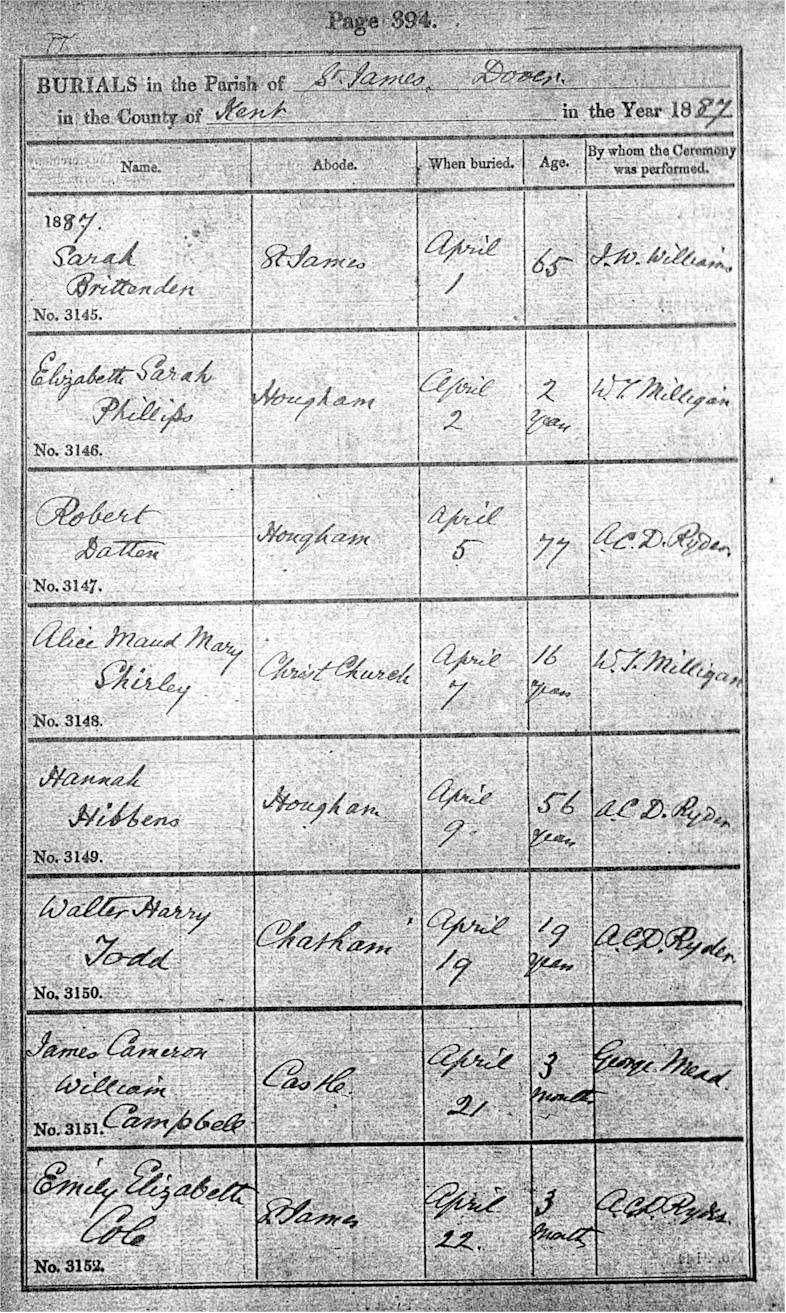 Page 394.
BURIALS in the Parish of St. James, Dover.
in the County of Kent in the Year 1887
Name. Abode. When buried. Age. By whom the Ceremony was performed.
1887.
Sarah
Brittenden
No. 3145.
St James
April
1
65
J. W. Williams
Elizabeth Sarah
Phillips
No. 3146.
Hougham
April
2
2
years
W. T. Milligan
Robert
Datten
No. 3147.
Hougham
April
5
77
A. C. D. Ryder
Alice Maud Mary
Shirley
No. 3148.
Christ Church
April
7
16
years
W. T. Milligan
Hannah
Hibbens
No. 3149.
Hougham
April
9
56
years
A C D. Ryder
Walter Harry
Todd
No. 3150.
Chatham
April
19
19
years
A.C.D. Ryder
James Cameron
William
Campbell
No. 3151.
Castle.
April
21
3
months
George Mead.
Emily Elizabeth
Cole
No. 3152.
St James
April
22.
3
months
A.C.D. Ryder.